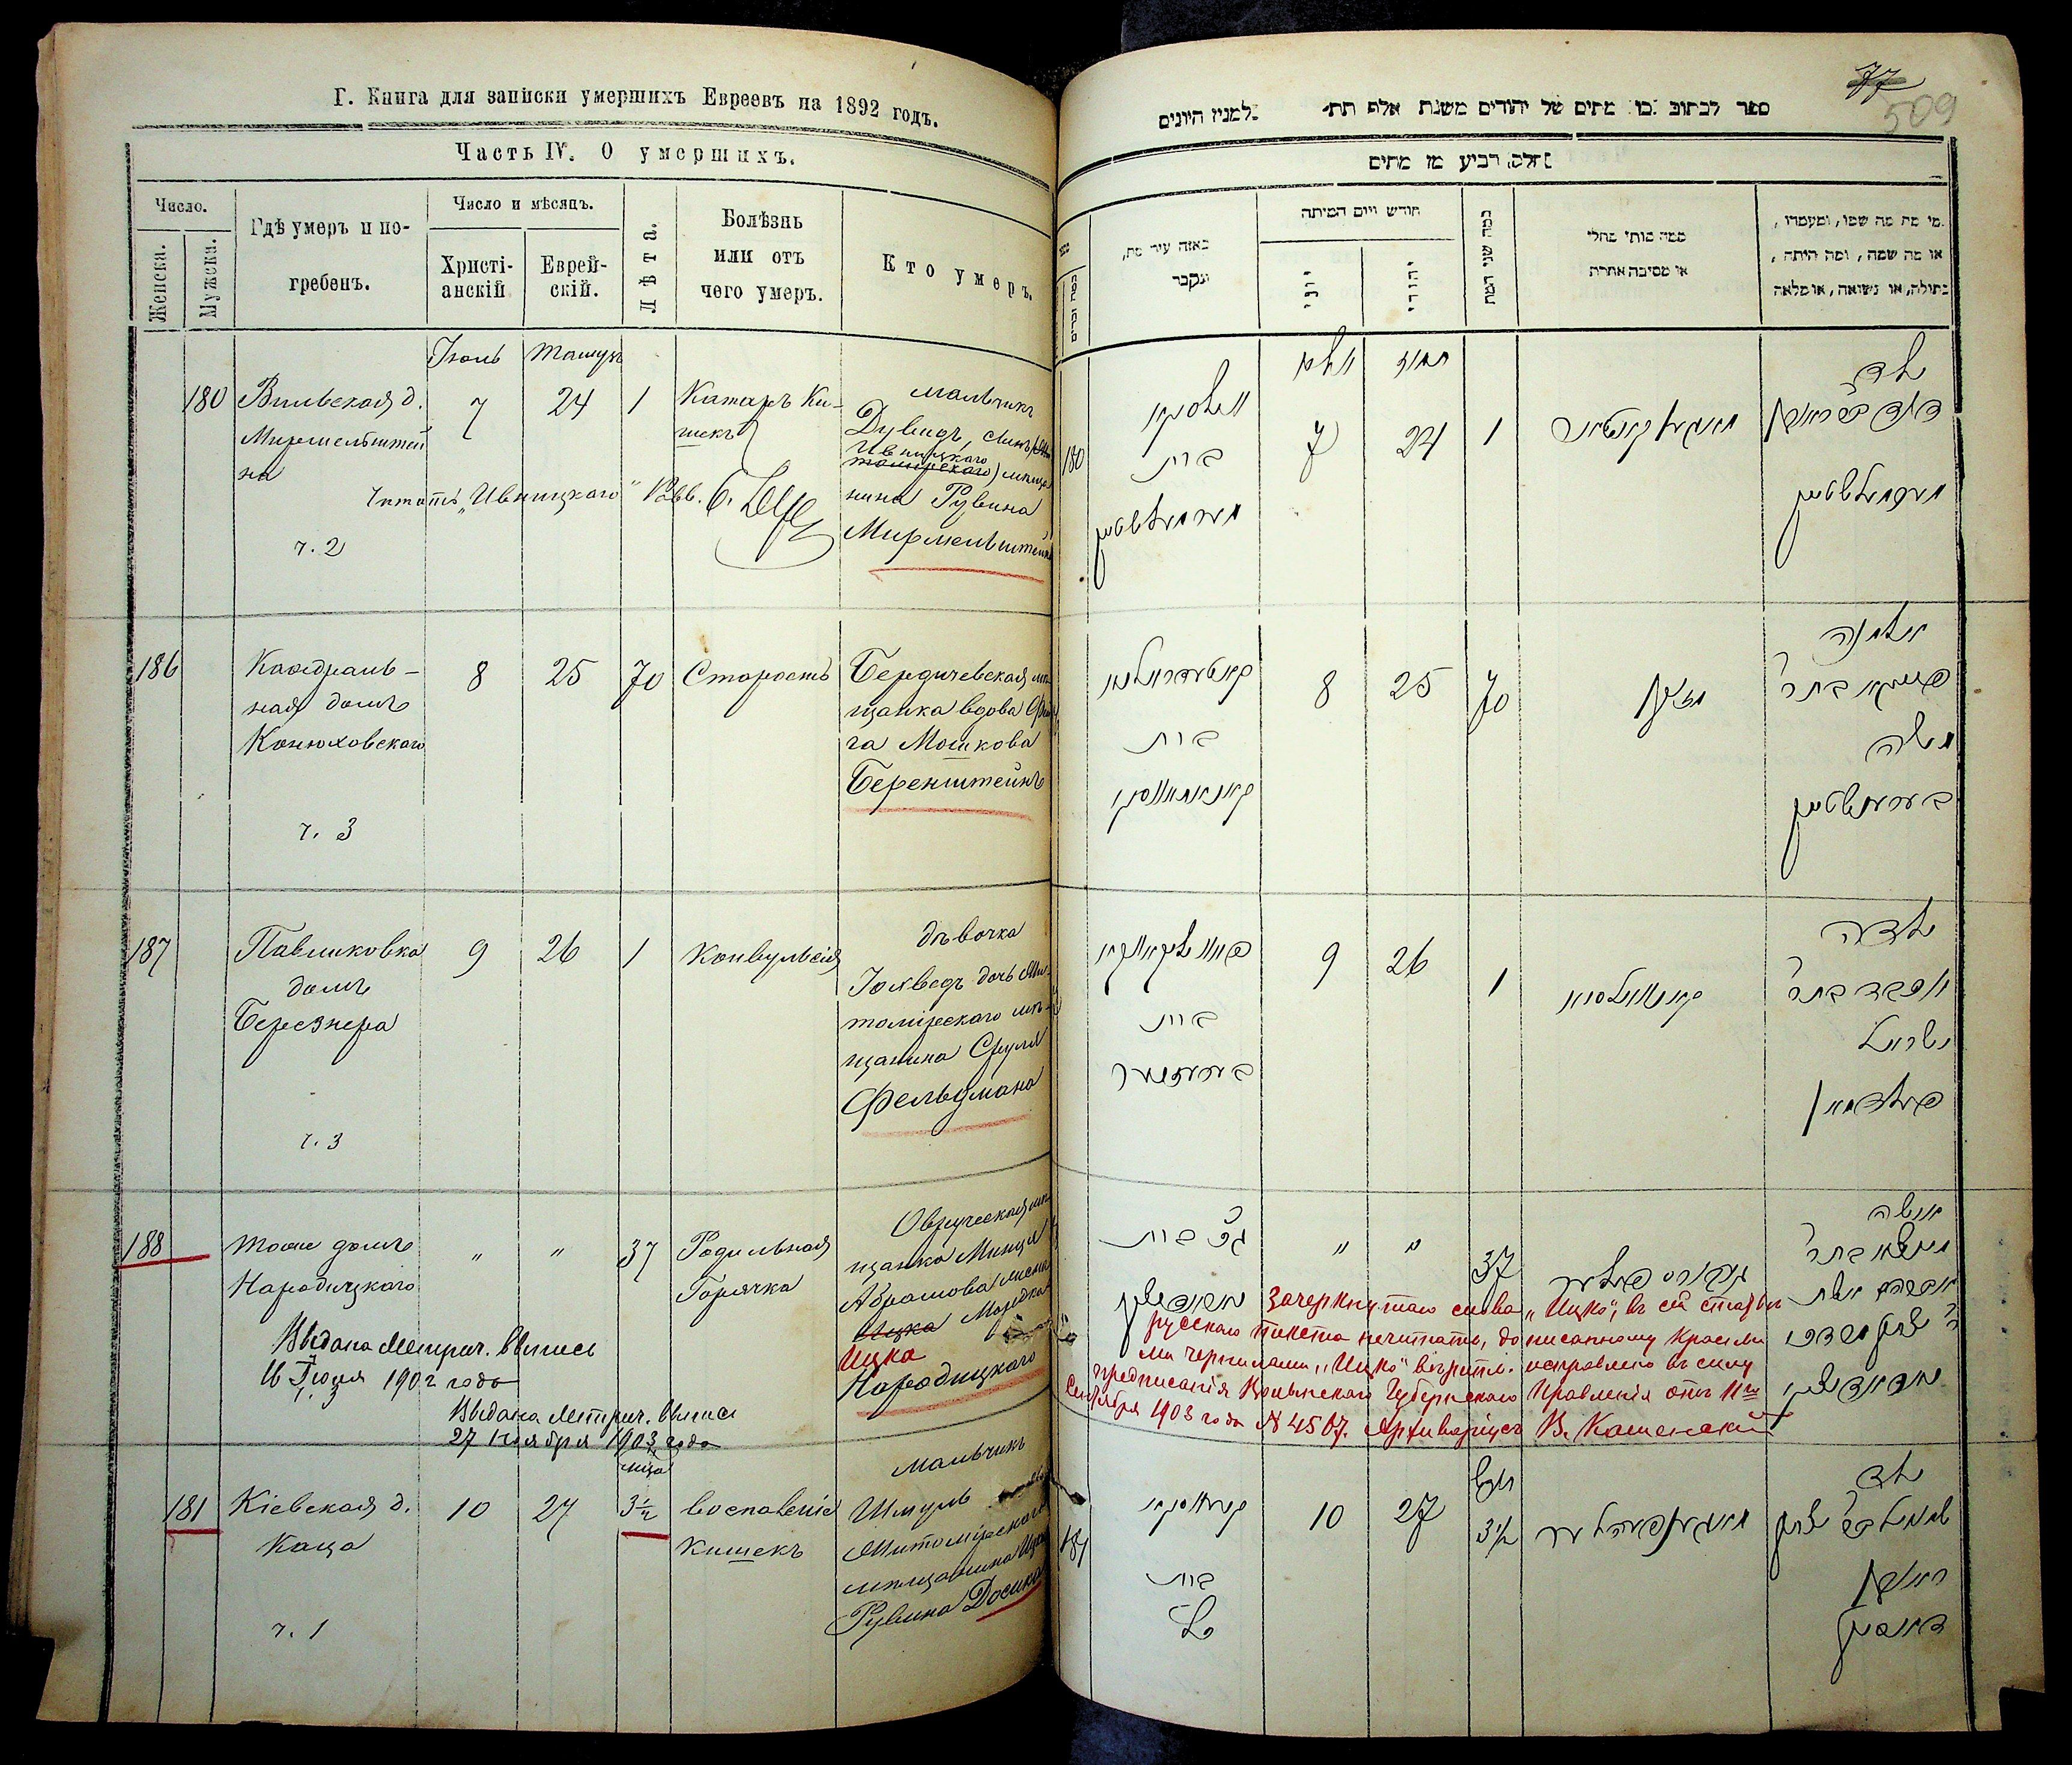 Г. Книга для записки умершихъ Евреевъ на 1892 годъ.
Часть IV. О умершихъ.
Число.
Женска.
Мужска.
Гдѣ умеръ и по-
гребенъ.
Число и мѣсяцъ.
Христі-
анскій
Еврей-
скій.
Лѣта.
Болѣзнь
или отъ
чего умеръ.
Кто умеръ.
Іюль
Тамузъ
180
Вильская д.
Мирмельштей
на
ч. 2
7
24
1
Катаръ Ки-
шекъ
мальчикъ
Дувидъ, сынъ
Ивницкаго
мѣща
нина Рувина
Мирмельштейна
Читать „Ивницкаго“ Равв.
186
Каѳедраль-
ная домъ
Конюховскаго
ч. 3
8
25
70
Старость
Бердичевская мѣ
щанка вдова
га Мошкова
Беренштейнъ
187
Павликовка
домъ
Березнера
ч. 3
9
26
1
Конвульсія
дѣвочка
Іохведъ дочь Жи-
томірскаго мѣ-
щанина Сруля
Фельдмана
188
тоже домъ
Народицкаго
ч. 3
"
"
37
Родильная
Горячка
Овручская мѣ
щанка Минця
Абрамова жена
Ицка Мордка
Ицка
Народицкаго
Выдана Метрич. выпись
16 Іюля 1902 года
Выдана Метрич. выпись
27 Ноября 1903 года
181
Кіевская д.
Каца
ч. 1
10
27
мѣся
3½
воспаленіе
кишекъ
мальчикъ
Шмуль
Житомірскаго
мѣщанина Ицка
Рувина Досика
77
509
ספר לכתוב בו מתים של יהודים משנת אלף תת־ למנין היונים
חלק רביע מן מתים
כמה זכרים
באזה עיר מת,
ונקבר
חודש ויום המיתה
יוני
יהודי
כמה שני המת
ממה מותו מחלי
או מסיבה אחרת
מי מת מה שמו, ומעמדו,
או מה שמה, ומה היתה,
בתולה, או נשואה, או מלאה
יולי
תמוז
180
ווילסקי
בית
מירמעלשטיין
7
24
1
ילד
דוד ב״ר ראובן
מירמעלשטיין
בית
8
25
70
זקן
אלמנה
בת ר׳
משה
בערענשטיין
בית
בערעזנער
9
26
1
קאנוואולסיא
ילדה
יוכבד בת ר׳
ישראל
פעלדמאן
בית
"
"
37
אשה
בת ר׳
אברהם אשת
ר׳ יצחק מרדכי
зачеркнутаго слова „Ицко“, въ сей статьѣ
русскаго текста нечитать, дописанному красны
ми чернилами „Ицко“ вѣрить. исправлено въ силу
предписанія Волынскаго Губернскаго Правленія отъ 11го
Сентября 1903 года № 4507. Архиваріусъ В. Каменскій
181
קיעווסקי
בית
כץ
10
27
3½
ילד
שמואל ב״ר יצחק
ראובן
דאסיק